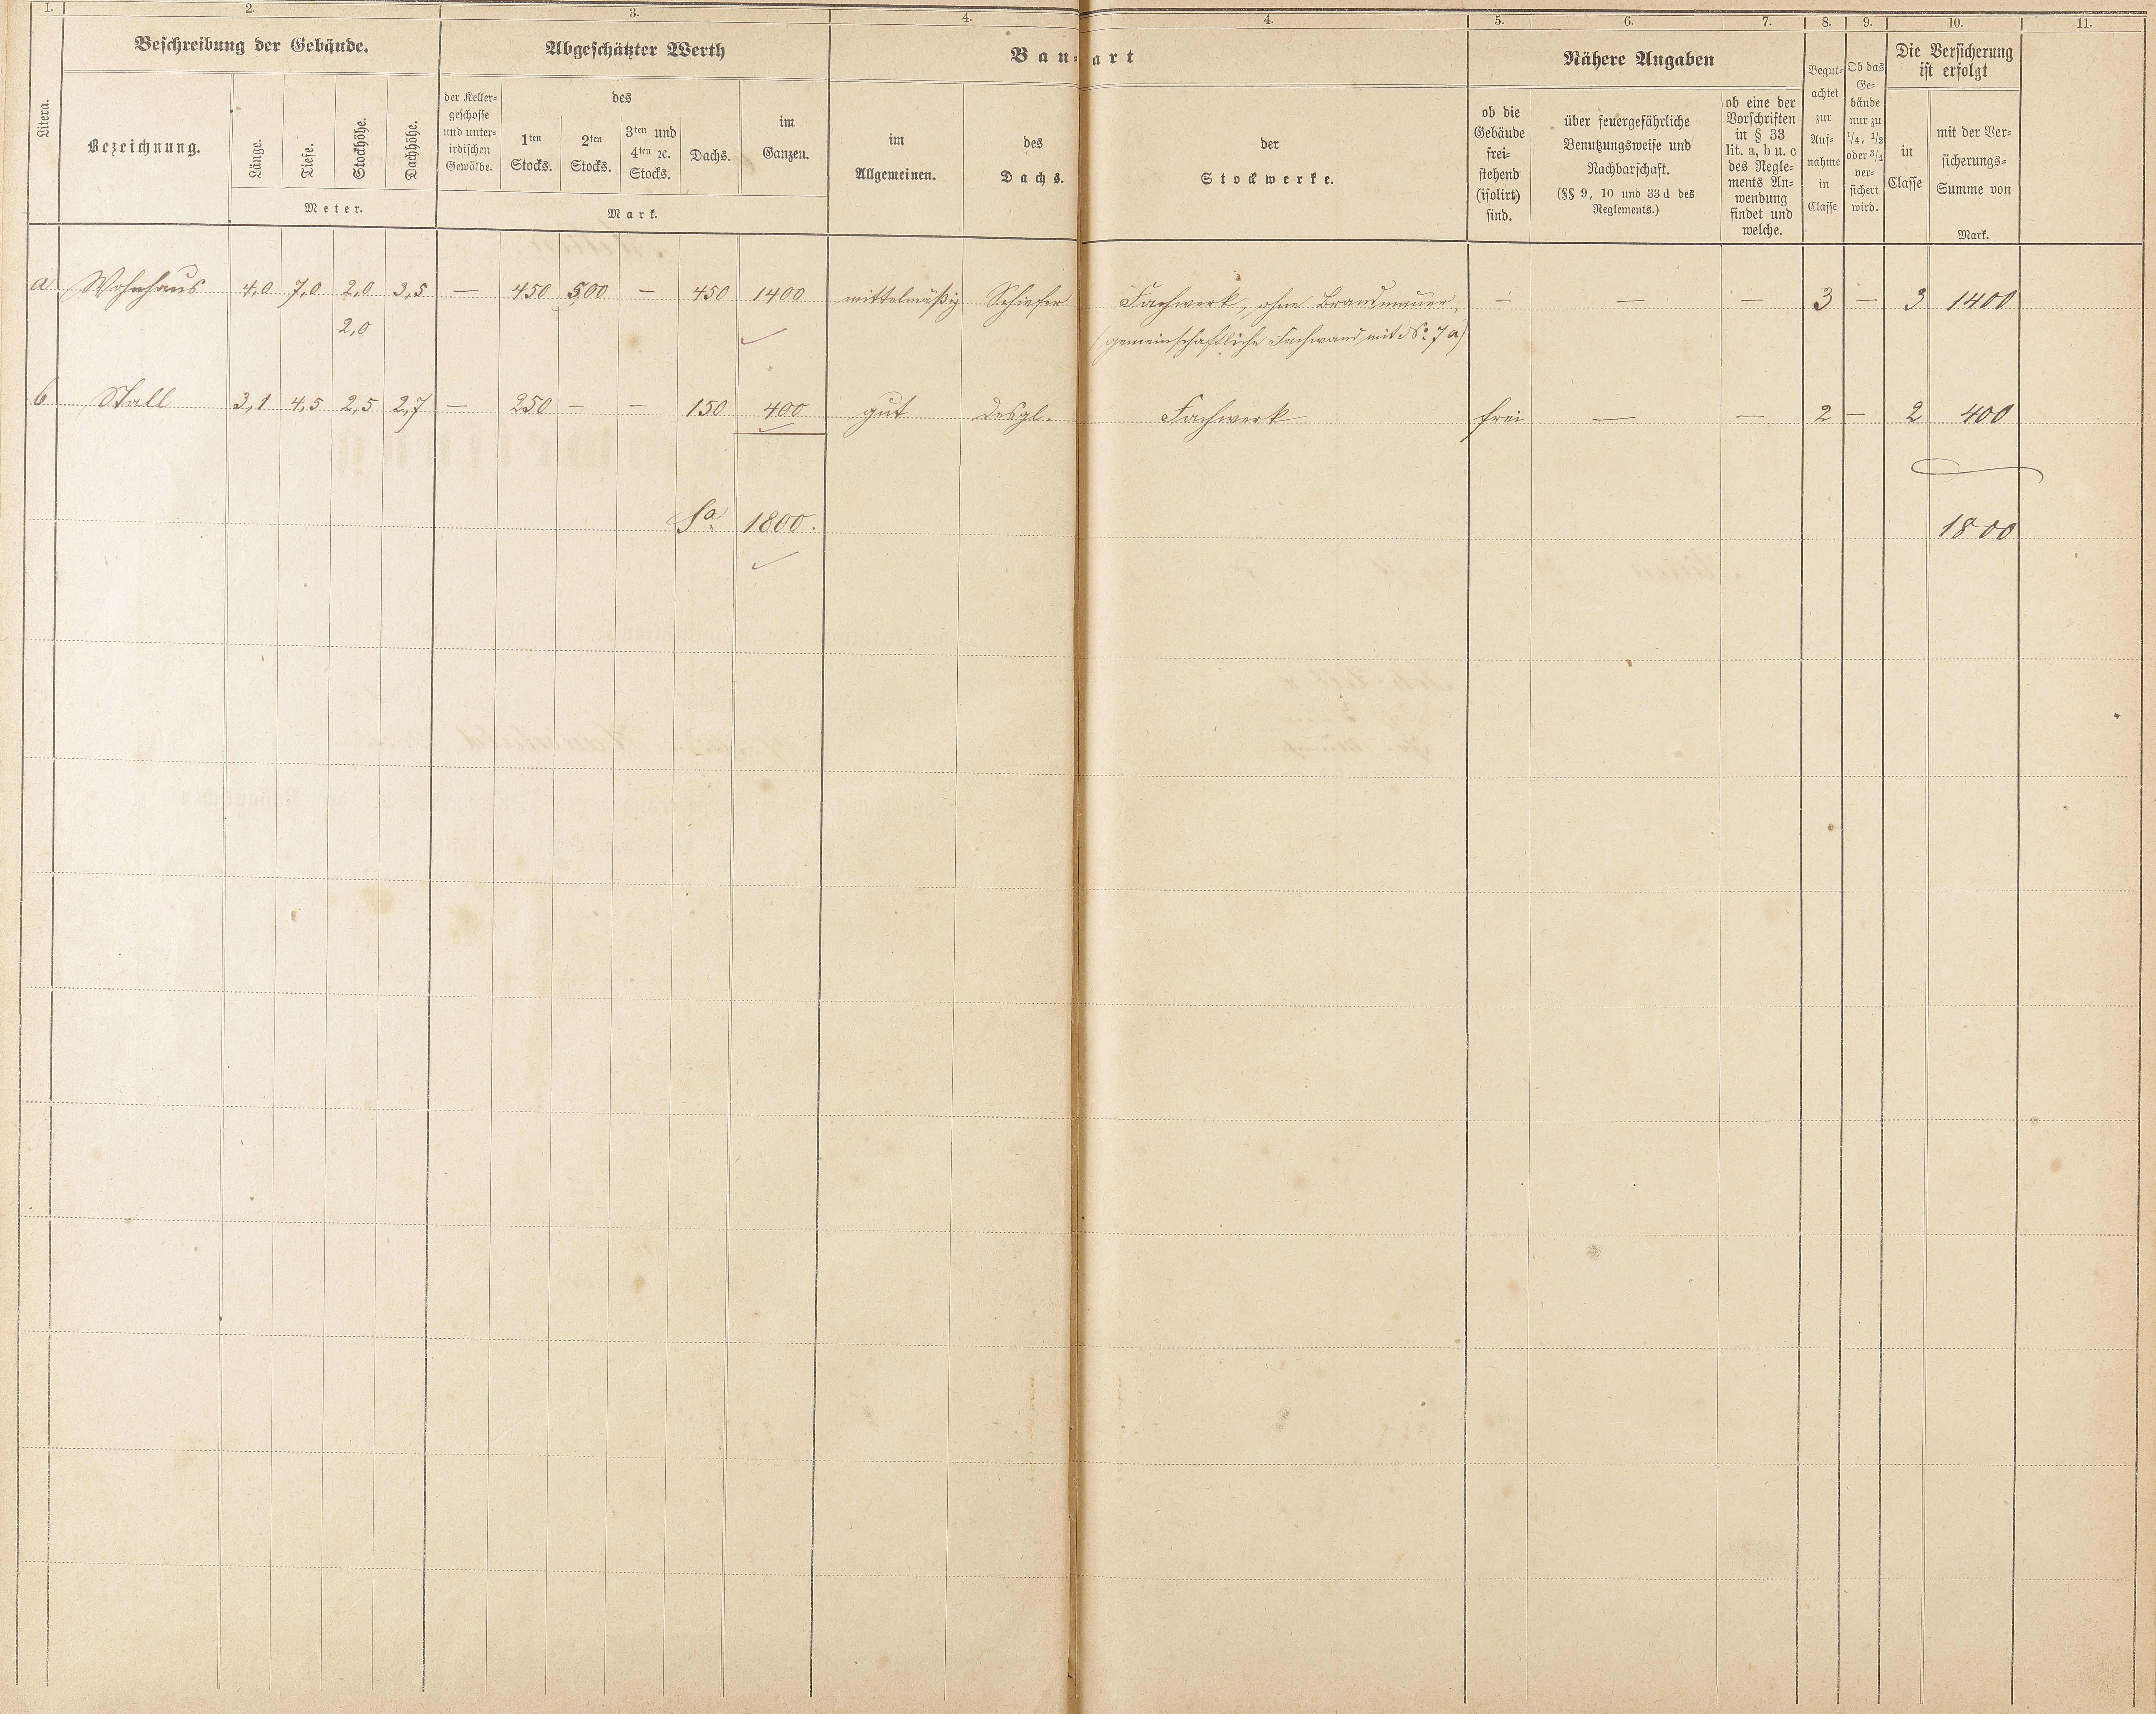 1. 2. 3. 4. 4. 5. 6. 7. 8. 9. 10. 11.
Litera.
Beschreibung der Gebäude.
Bezeichnung.
Länge.
Tiefe.
Stockhöhe.
Dachhöhe.
Meter.
Abgeschätzter Werth
der Keller=
geschosse
und unter=
irdischen
Gewölbe.
des
1ten
Stocks.
2ten
Stocks.
3ten und
4ten ꝛc.
Stocks.
Dachs.
im
Ganzen.
Mark.
Bau=art
im
Allgemeinen.
des
Dachs.
der
Stockwerke.
Nähere Angaben
ob die
Gebäude
frei=
stehend
(isolirt)
sind.
über feuergefährliche
Benutzungsweise und
Nachbarschaft.
(§§ 9, 10 und 33 d des
Reglements.)
ob eine der
Vorschriften
in § 33
lit. a, b u. c
des Regle=
ments An=
wendung
findet und
welche.
Begut=
achtet
zur
Auf=
nahme
in
Classe
Ob das
Ge=
bäude
nur zu
1/4, 1/2
oder 3/4
ver=
sichert
wird.
Die Versicherung
ist erfolgt
in
Classe
mit der Ver=
sicherungs=
Summe von
Mark.
a Wohnhaus 4,0 7,0 2,0 3,5 — 450 500 — 450 1400 mittelmäßig Schiefer Fachwerk, ohne Brandmauer, — — — 3 — 3 1400
2,0 (gemeinschaftliche Fachwand mit No. 7 a)
b Stall 3,1 4,5 2,5 2,7 — 250 — — 150 400 gut desgl. Fachwerk frei — — 2 — 2 400
Sa. 1800. 1800